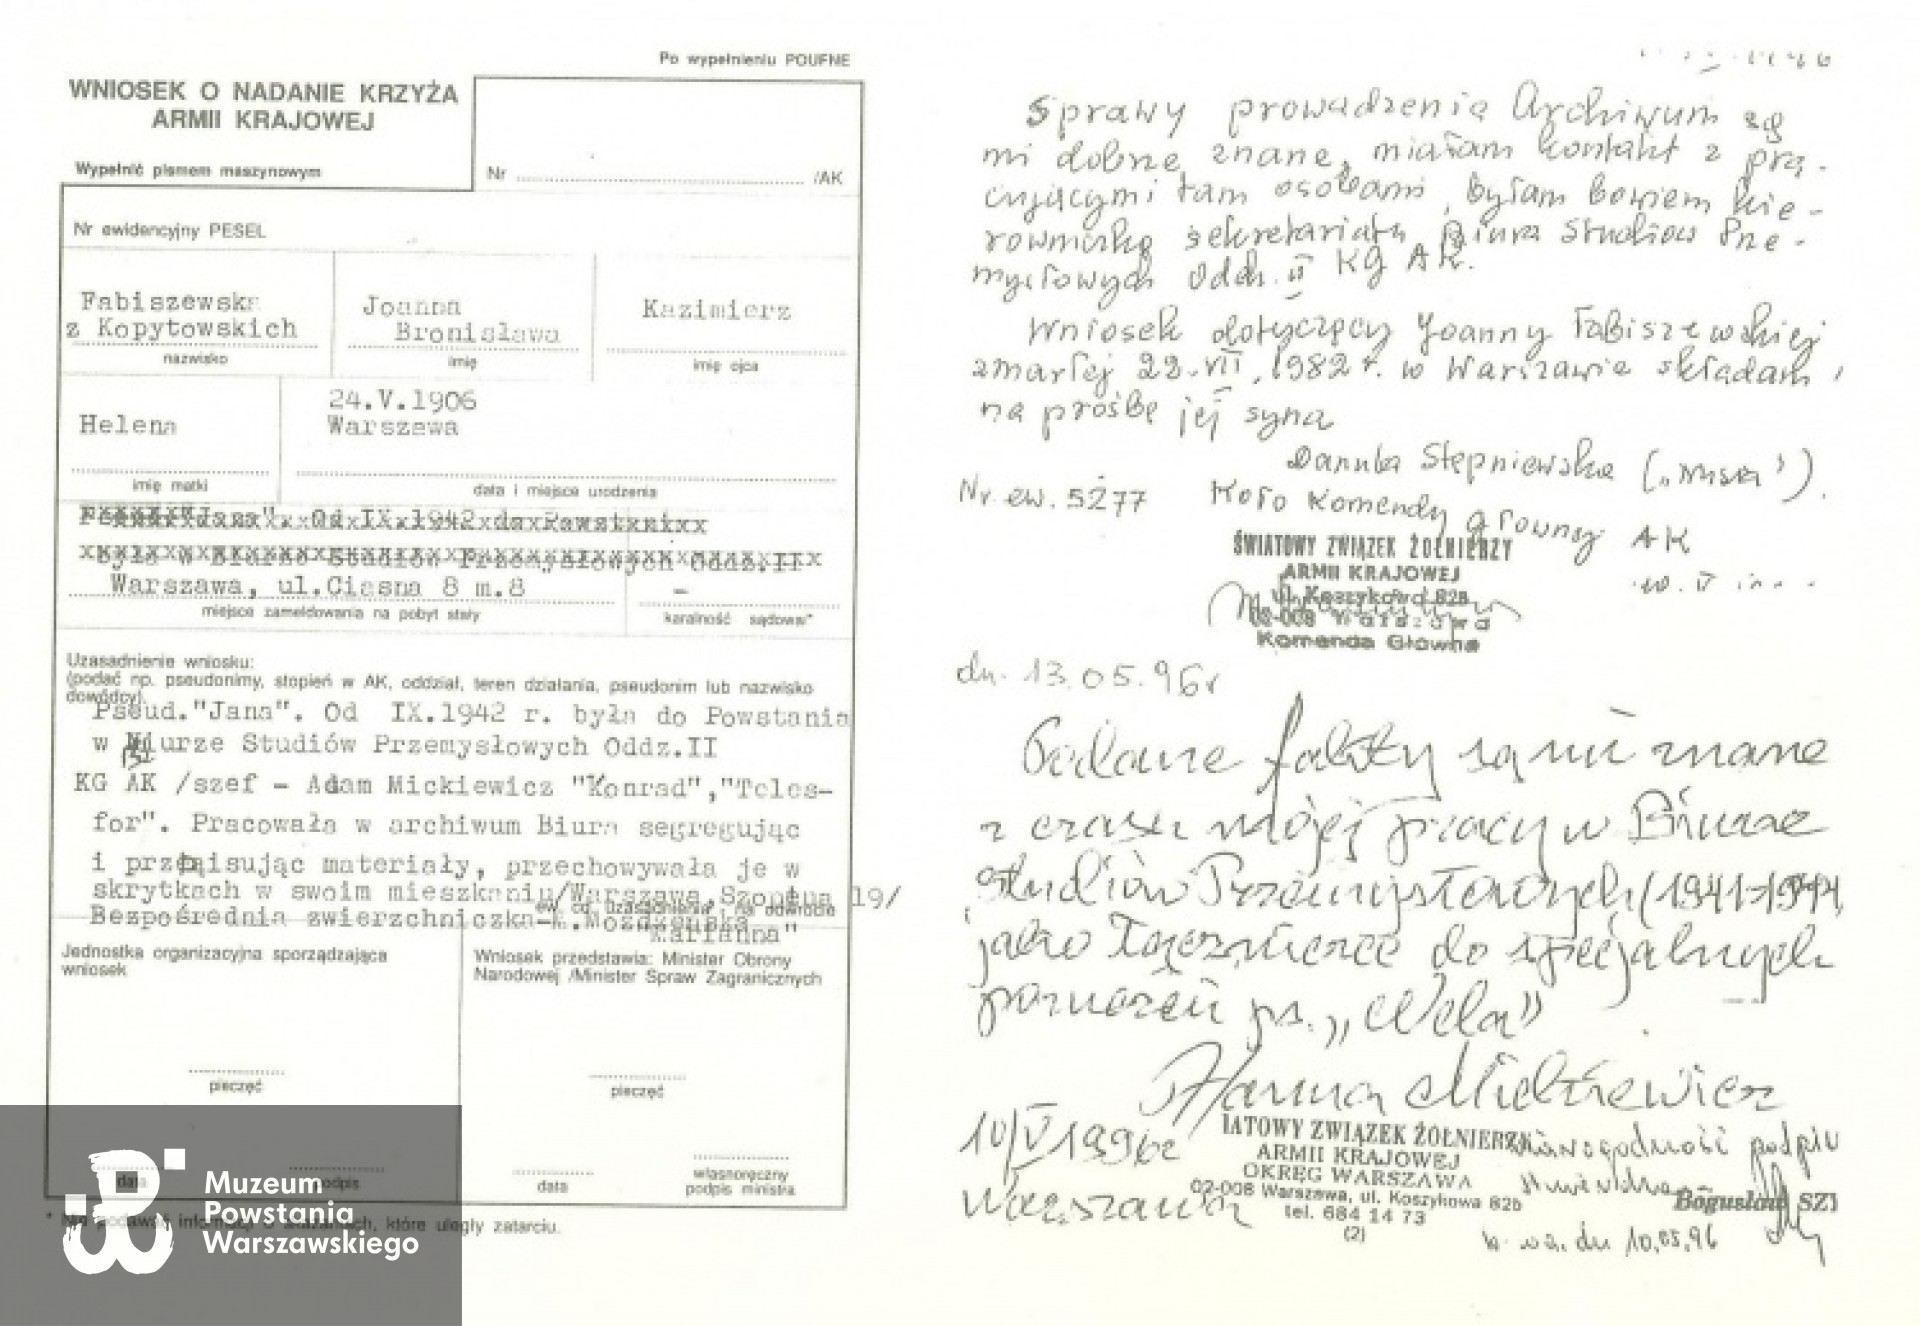 Po wypełnieniu POUFNE
WNIOSEK O NADANIE KRZYŻA
ARMII KRAJOWEJ
Wypełnić pismem maszynowym
Nr /AK
Nr ewidencyjny PESEL
Fabiszewska
z Kopytowskich
nazwisko
Joanna
Bronisława
imię
Kazimierz
imię ojca
Helena
imię matki
24.V.1906
Warszawa
data i miejsce urodzenia
"Jana". Od IX.1942 do Powstania
była w Biurze Studiów Przemysłowych Oddz.II
Warszawa, ul.Ciasna 8 m.8
miejsce zameldowania na pobyt stały
–
karalność sądowa*
Uzasadnienie wniosku:
(podać np. pseudonimy, stopień w AK, oddział, teren działania, pseudonim lub nazwisko
dowódcy).
Pseud."Jana". Od IX.1942 r. była do Powstania
w Biurze Studiów Przemysłowych Oddz.II
KG AK /szef – Adam Mickiewicz "Konrad","Teles-
for". Pracowała w archiwum Biura segregując
i przepisując materiały, przechowywała je w
skrytkach w swoim mieszkaniu/Warszawa, 19/
Bezpośrednia zwierzchniczka-
uzasadnienia na odwrocie
"Marianna"
Jednostka organizacyjna sporządzająca
wniosek
pieczęć
data
podpis
Wniosek przedstawia: Minister Obrony
Narodowej /Minister Spraw Zagranicznych
pieczęć
data
własnoręczny
podpis ministra
* podawać informacji o które uległy zatarciu.
Muzeum
Powstania
Warszawskiego
Sprawy prowadzenia Archiwum są
mi dobrze znane, miałam kontakt z pra-
cującymi tam osobami, byłam bowiem kie-
rowniczką sekretariatu Biura Studiów Prze-
mysłowych Oddz. II KG AK.
Wniosek dotyczący Joanny Fabiszewskiej
zmarłej 22.VII.1982 r. w Warszawie składam
na prośbę jej syna
Danuta Stępniewska
Nr. ew. 5277 Koło Komendy Głównej AK
ŚWIATOWY ZWIĄZEK ŻOŁNIERZY
ARMII KRAJOWEJ
ul. Koszykowa 82b
02-008 Warszawa
Komenda Główna
dn. 13.05.96r
Podane fakty są mi znane
z czasu mojej pracy w Biurze
Studiów Przemysłowych (1941-1944,
jako łączniczce do specjalnych
poruczeń ps. „Wela”
Hanna Mickiewicz
10/V 1996r
Warszawa
IATOWY ZWIĄZEK ŻOŁNIERZY
ARMII KRAJOWEJ
OKRĘG WARSZAWA
02-008 Warszawa, ul. Koszykowa 82b
tel. 684 14 73
(2)
wiarogodność podpisu
Bogusław SZ
dn 10.05.96